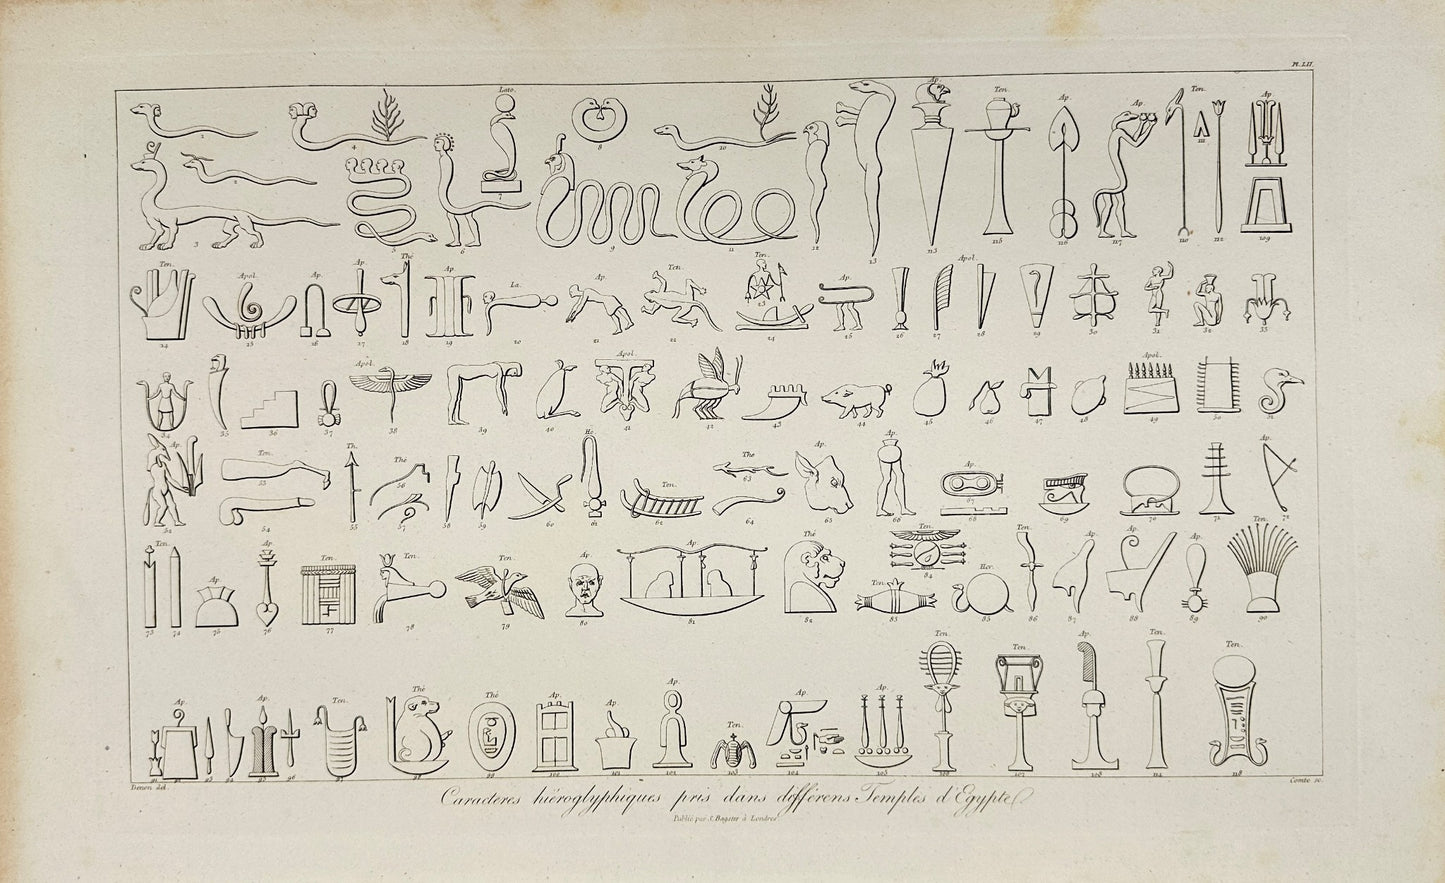 Pl. LII.
Lato.
Ap.
Ten.
Ap.
Ap.
Ten.
Ap.
1
2
3
4
5
6
7
8
9
10
11
12
13
113
115
116
117
110
111
112
109
Ten.
Apol.
Ap.
Ap.
Thé
Ap.
La.
Ap.
Ten.
Ten.
Ap.
Apol.
14
15
16
17
18
19
20
21
22
23
24
25
26
27
28
29
30
31
32
33
Apol.
Apol.
Apol.
34
35
36
37
38
39
40
41
42
43
44
45
46
47
48
49
50
51
Ap.
Ten.
Th.
Thé
He.
Ten.
The
Ap.
Ap.
Ap.
Ap.
52
53
54
55
56
57
58
59
60
61
62
63
64
65
66
67
68
69
70
71
72
Ten.
Ap.
Ap.
Ten.
Ten.
Ten.
Ap.
Ap.
Thé
Ten.
Ten.
Her.
Ten.
Ap.
Ap.
Ap.
Ten.
73
74
75
76
77
78
79
80
81
82
83
84
85
86
87
88
89
90
Ap.
Ap.
Ten.
Thé
Thé
Ap.
Ap.
Ap.
Ten.
Ap.
Ap.
Ten.
Ten.
Ap.
Ten.
Ten.
91
93
94
95
96
97
98
99
100
101
102
103
104
105
106
107
108
114
118
Denon del.
Comte sc.
Caracteres hiéroglyphiques pris dans différens Temples d'Egypte
Publié par S. Bagster à Londres